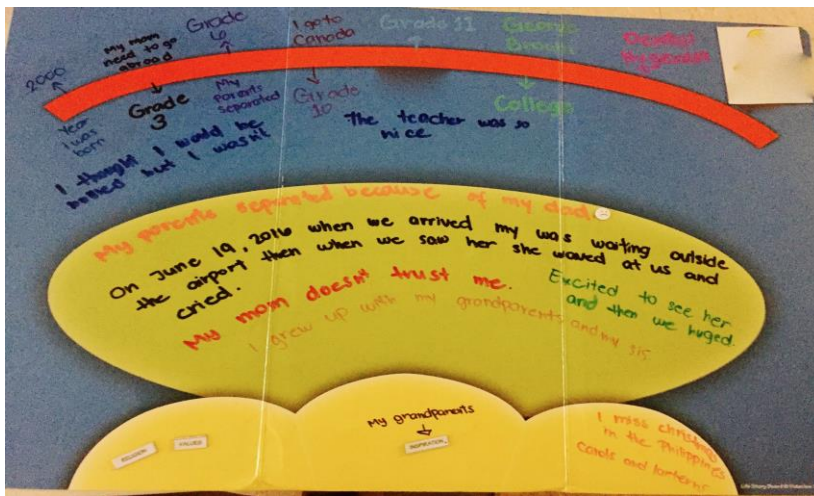 2000
Year
I was
born
My mom
need to go
abroad
Grade
3
Grade
6
My
parents
separated
I go to
Canada
Grade
10
Grade 11
George
Brown
College
Dental
Hygienist
I thought I would be
bullied but I wasn't
The teacher was so
nice.
My parents separated because of my dad.
On June 19, 2016 when we arrived my was waiting outside
the airport then when we saw her she waved at us and
cried.
My mom doesn't trust me.
Excited to see her
and then we huged.
I grew up with my grandparents and my sis
RELIGION
VALUES
My grandparents
INSPIRATION
I miss christmas
in the Philippines
Carols and lanterns